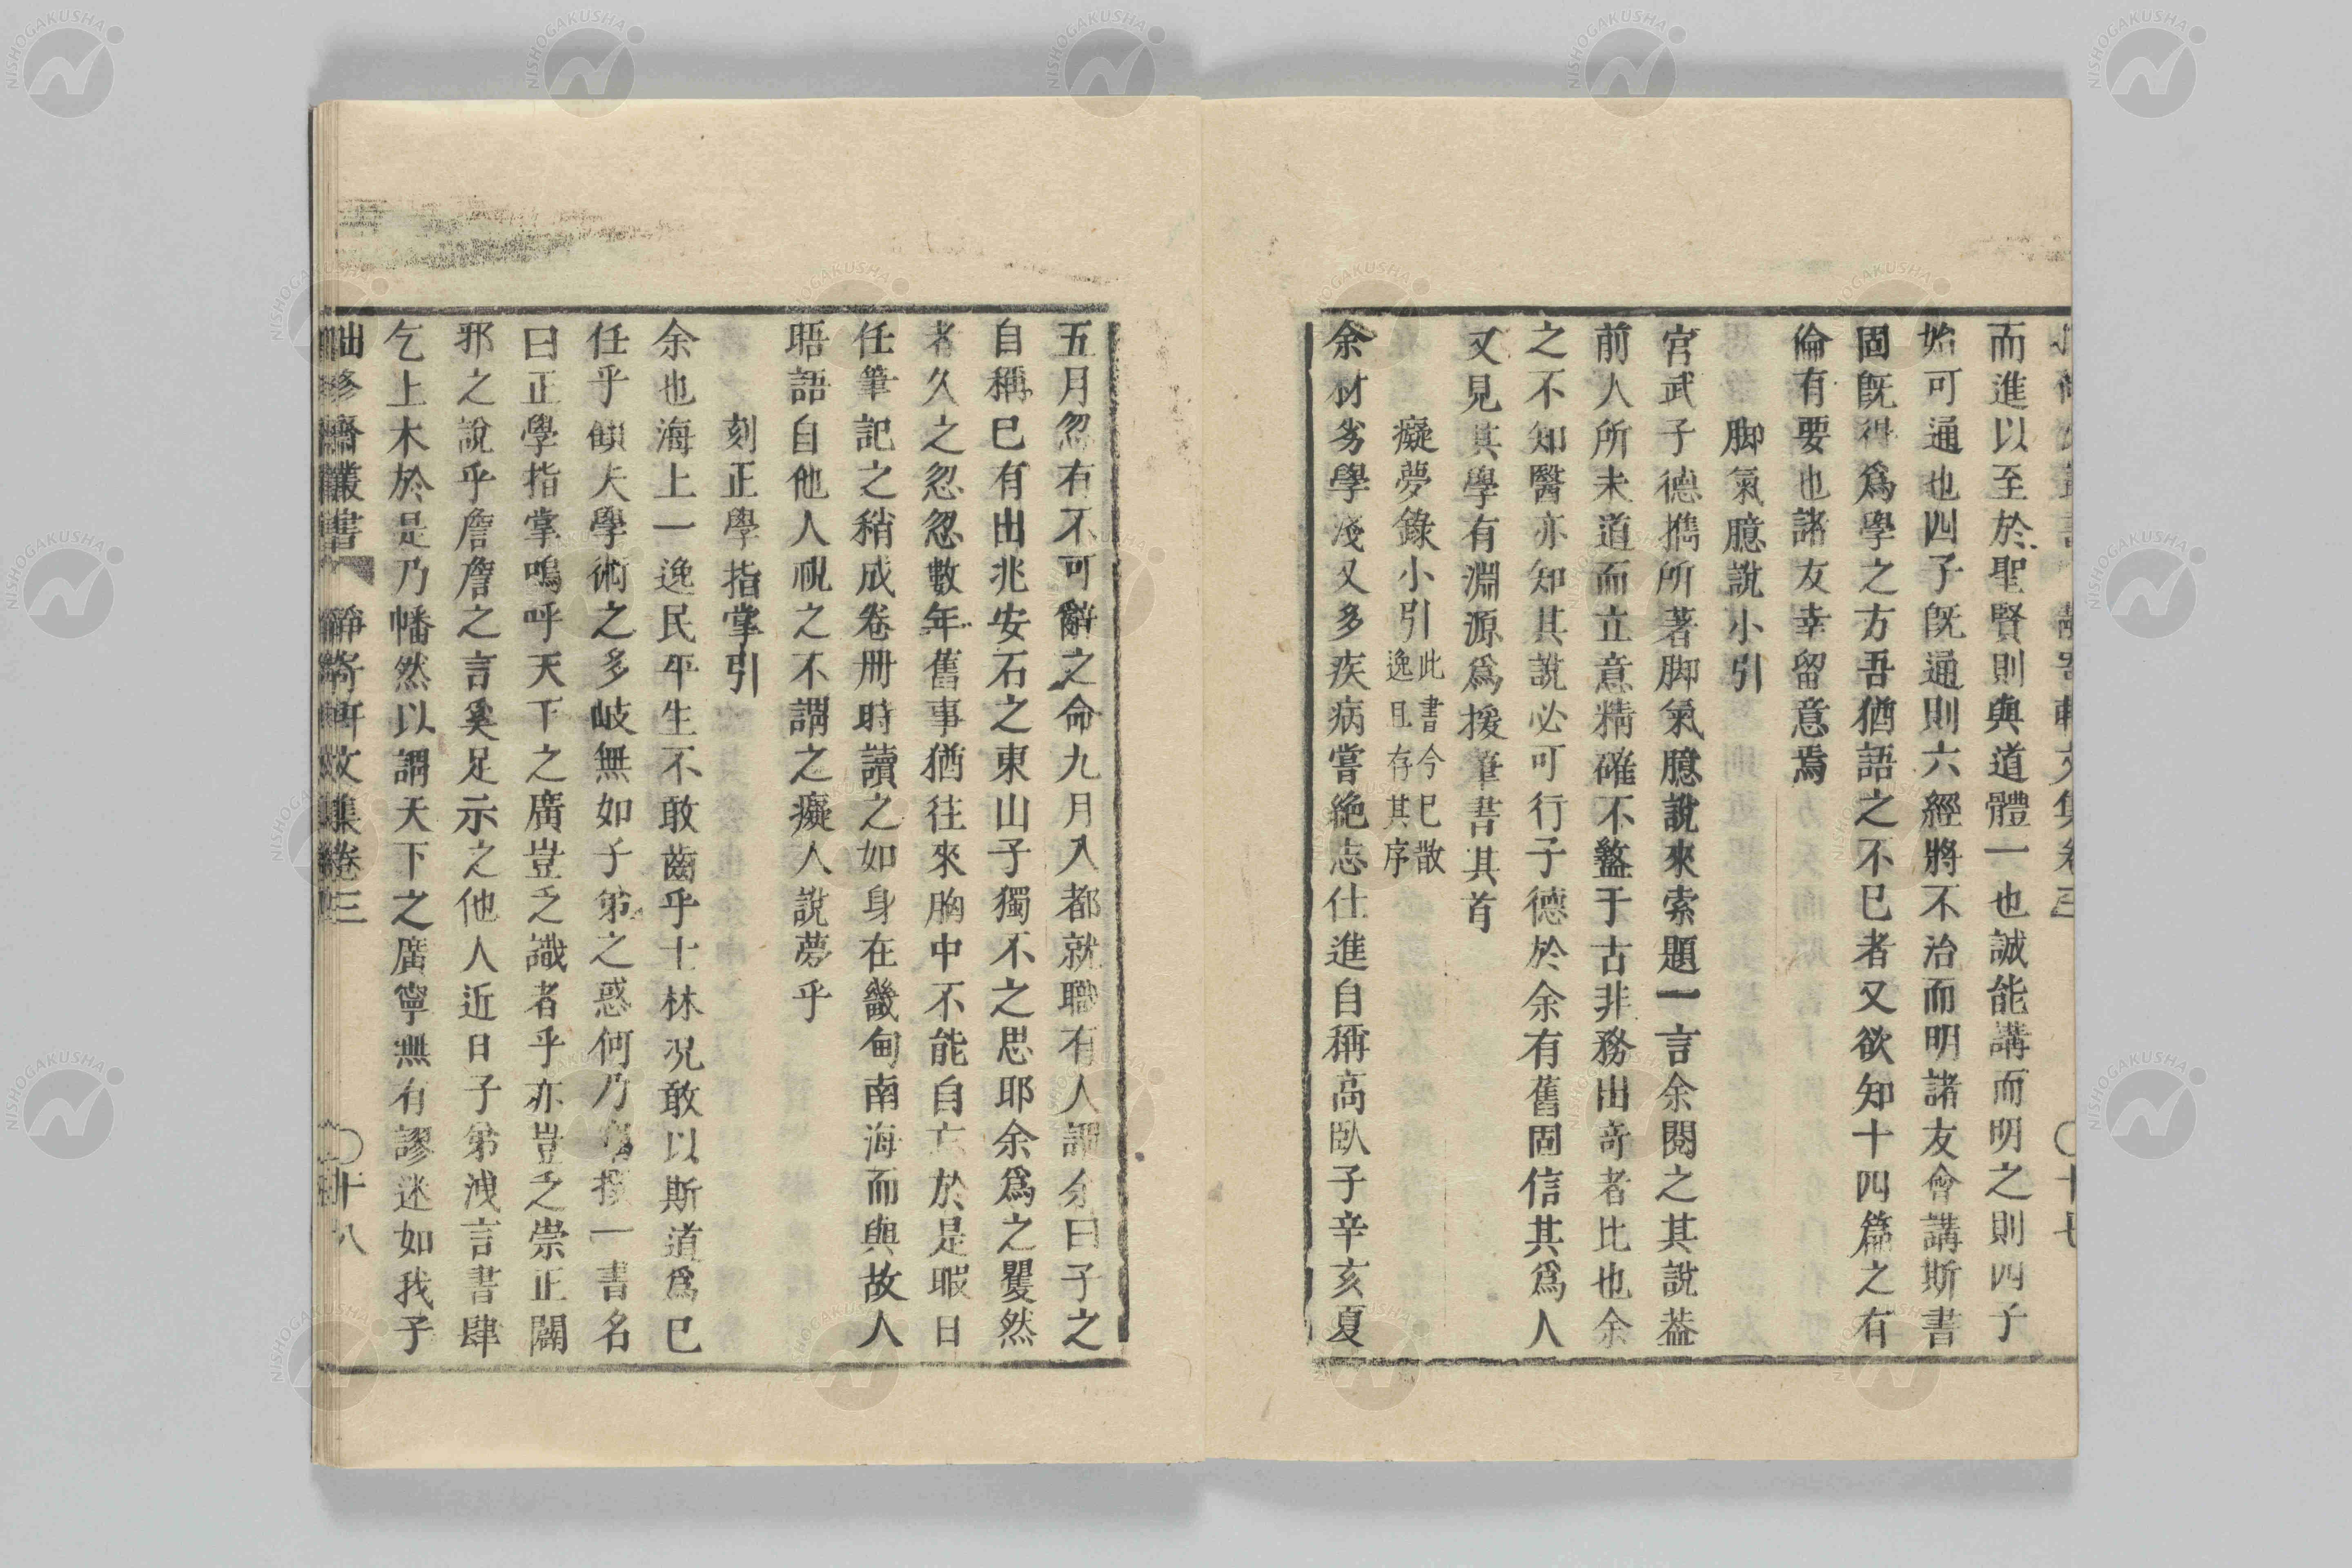 而進以至於聖賢則與道體一也誠能講而明之則四子
始可通也四子旣通則六經將不治而明諸友會講斯書
固旣得爲學之方吾猶語之不已者又欲知十四篇之有
倫有要也諸友幸留意焉
脚氣臆說小引
宮武子德擕所著脚氣臆說來索題一言余閱之其說葢
前人所未道而立意精確不盭于古非務出奇者比也余
之不知醫亦知其說必可行子德於余有舊固信其爲人
又見其學有淵源爲援筆書其首
癡夢錄小引此書今已散
逸且存其序
余材劣學淺又多疾病嘗絶志仕進自稱高臥子辛亥夏
五月忽有不可辭之命九月入都就職有人謂余曰子之
自稱已有出兆安石之東山子獨不之思耶余爲之矍然
者久之忽忽數年舊事猶往來胸中不能自忘於是暇日
任筆記之稍成卷冊時讀之如身在畿甸南海而與故人
晤語自他人視之不謂之癡人說夢乎
刻正學指掌引
余也海上一逸民平生不敢齒乎士林况敢以斯道爲已
任乎傾夫學術之多岐無如子弟之惑何乃撰一書名
曰正學指掌嗚呼天下之廣豈乏識者乎亦豈乏崇正闢
邪之說乎詹詹之言奚足示之他人近日子弟洩言書肆
乞上木於是乃幡然以謂天下之廣寧無有謬迷如我子
文集卷三
〇十八
NISHOGAKUSHA